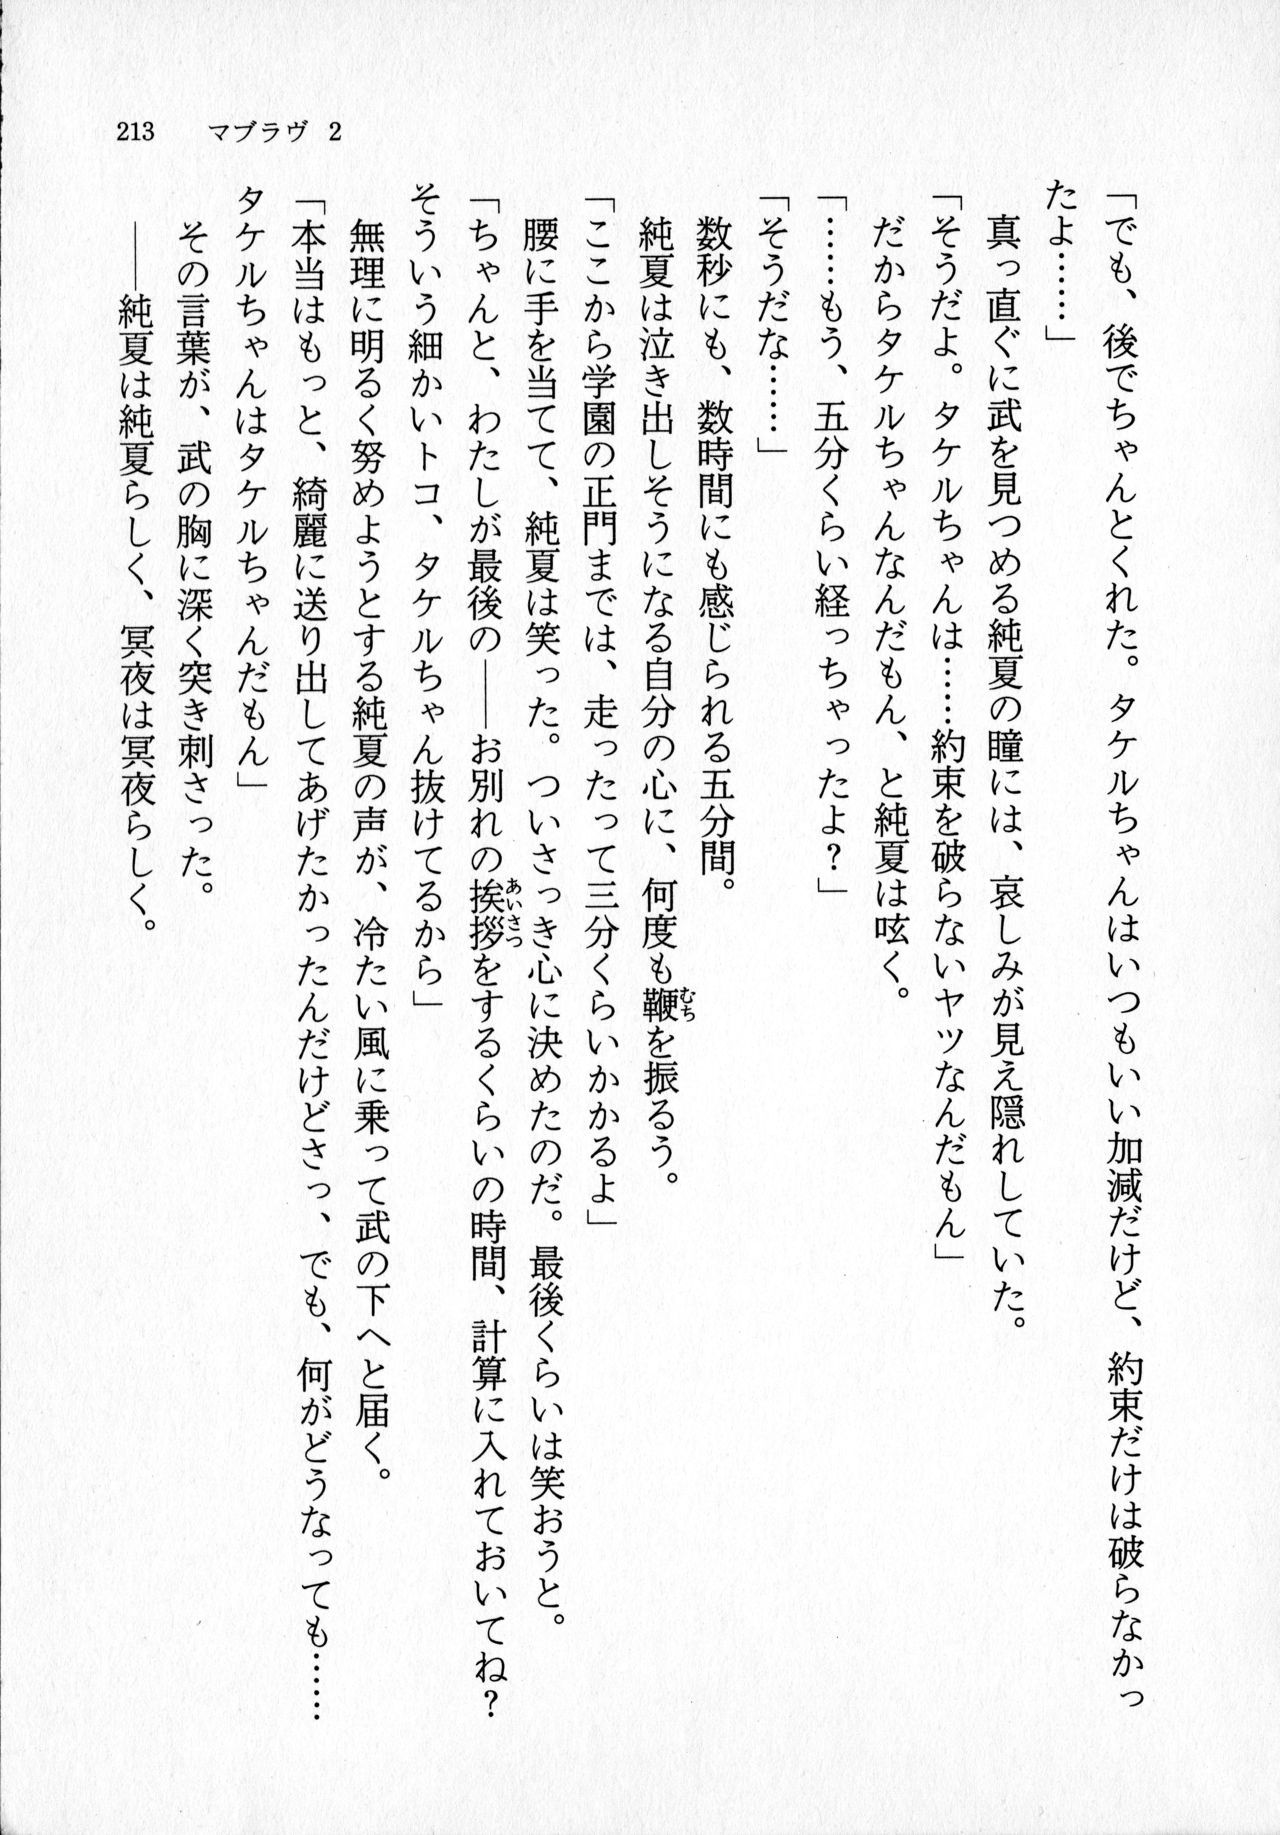 213　マブラヴ 2
「でも、後でちゃんとくれた。タケルちゃんはいつもいい加減だけど、約束だけは破らなかっ
たよ……」
　真っ直ぐに武を見つめる純夏の瞳には、哀しみが見え隠れしていた。
「そうだよ。タケルちゃんは……約束を破らないヤツなんだもん」
　だからタケルちゃんなんだもん、と純夏は呟く。
「……もう、五分くらい経っちゃったよ？」
「そうだな……」
　数秒にも、数時間にも感じられる五分間。
　純夏は泣き出しそうになる自分の心に、何度も鞭を振るう。
「ここから学園の正門までは、走ったって三分くらいかかるよ」
　腰に手を当てて、純夏は笑った。ついさっき心に決めたのだ。最後くらいは笑おうと。
「ちゃんと、わたしが最後の――お別れの挨拶をするくらいの時間、計算に入れておいてね？
そういう細かいトコ、タケルちゃん抜けてるから」
　無理に明るく努めようとする純夏の声が、冷たい風に乗って武の下へと届く。
「本当はもっと、綺麗に送り出してあげたかったんだけどさっ、でも、何がどうなっても……
タケルちゃんはタケルちゃんだもん」
　その言葉が、武の胸に深く突き刺さった。
　――純夏は純夏らしく、冥夜は冥夜らしく。
むち
あいさつ